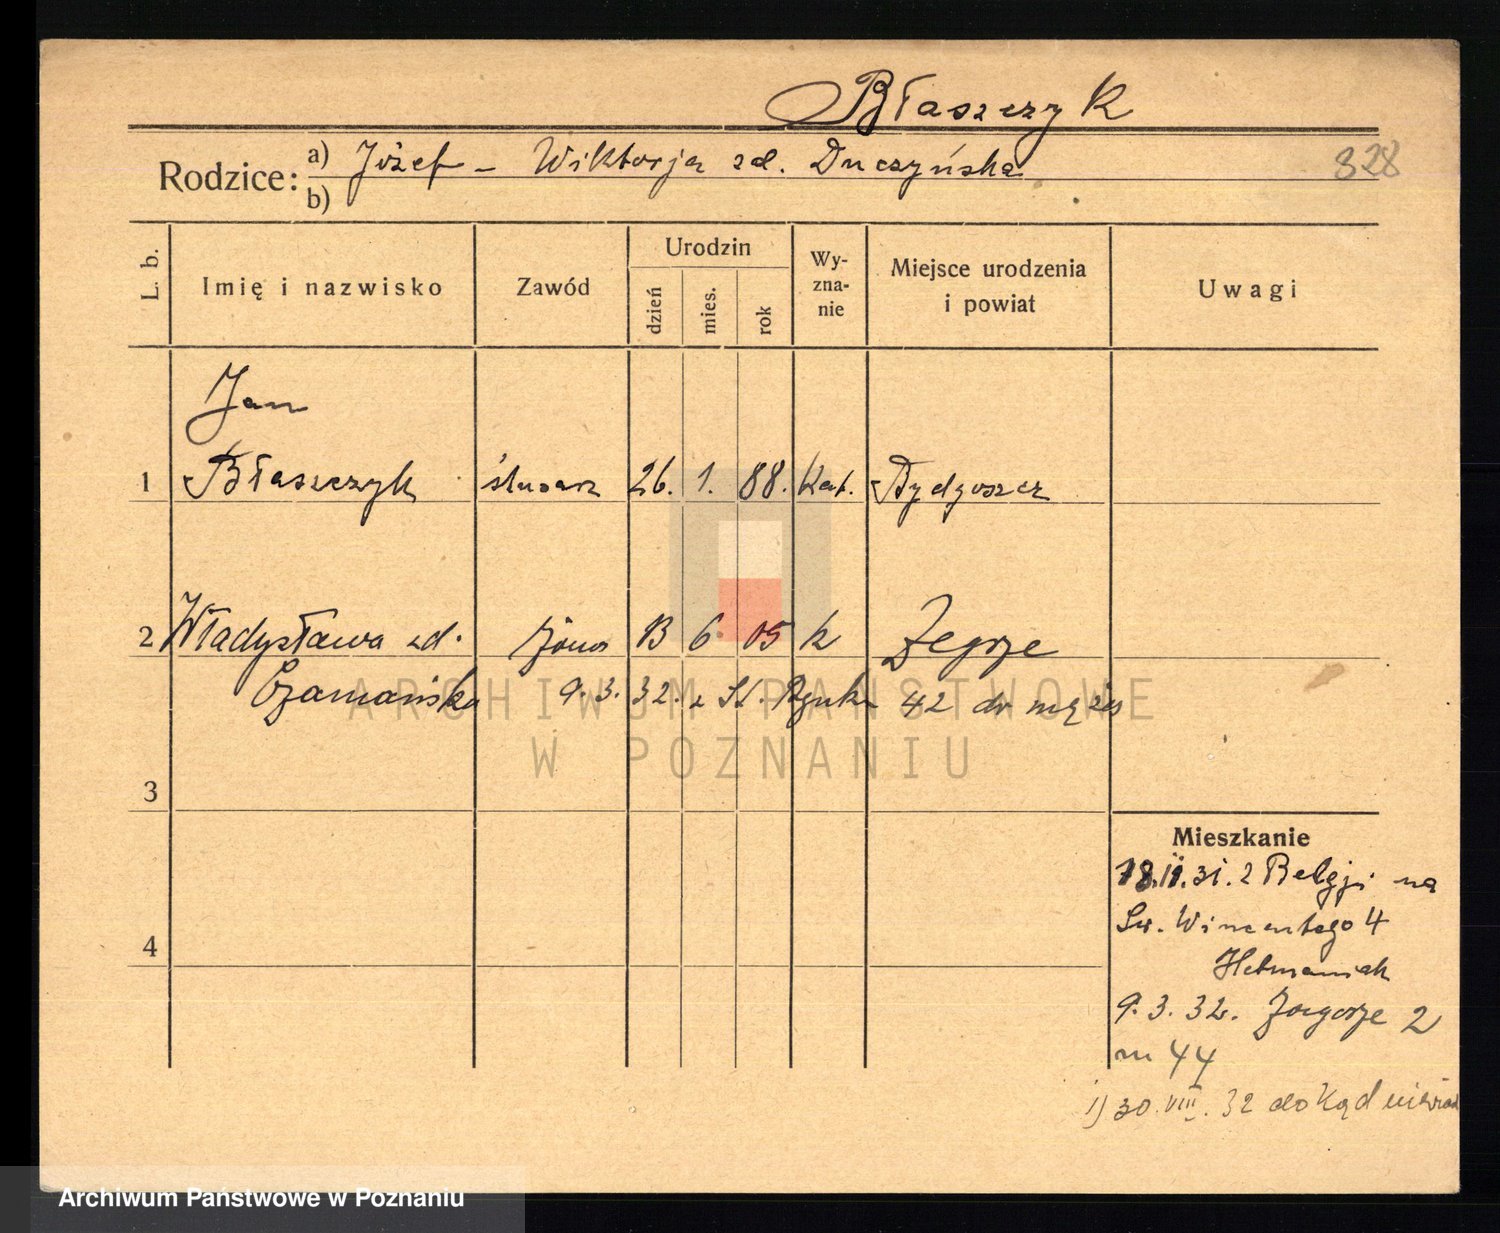 Błaszczyk
Rodzice: a) Józef – Wiktorja zd. Duczyńska
b)
328
L. b.
Imię i nazwisko
Zawód
Urodzin
dzień
mies.
rok
Wy-
zna-
nie
Miejsce urodzenia
i powiat
Uwagi
Jan
1 Błaszczyk ślusarz 26. 1. 88. Kat. Bydgoszcz
2 Władysława zd. żona 13 6 05 k Zegrze
9. 3. 32. z St. Rynku 42 do męża
ARCHIWUM PAŃSTWOWE
W POZNANIU
3
4
Mieszkanie
18.11.31. z Belgji na
Św. Wincentego 4
Hetmaniak
9. 3. 32. Zagorze 2
m 44
1) 30.VIII. 32 dokąd niewiad
Archiwum Państwowe w Poznaniu